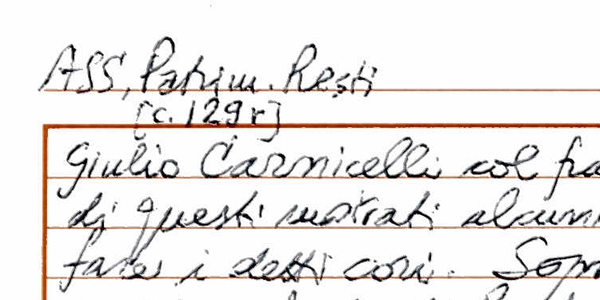 ASS, Patrim. Resti
[c. 129r]
Giulio Carnicelli col fra
di questi mostrati alcuni
fare i detti cori. Sopr